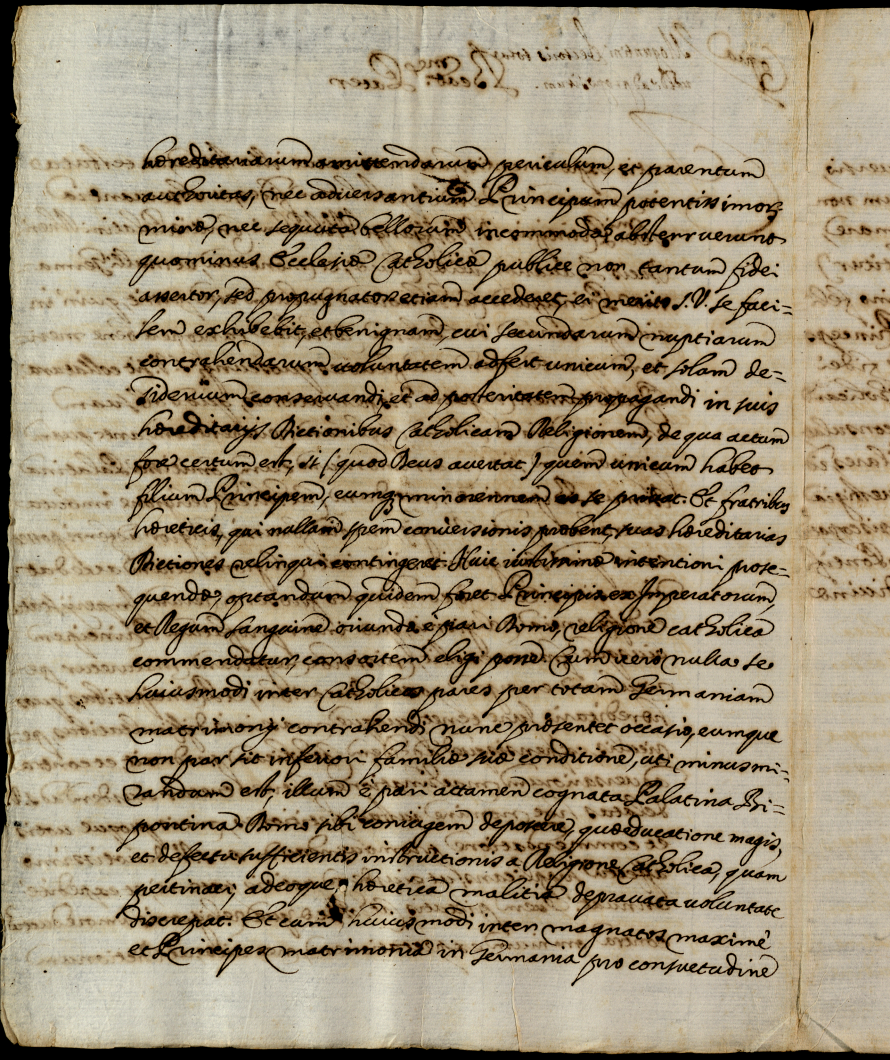 hæreditariarum amittendarum periculum, et parentum
authoritas, nec adversantium Principum potentissimor
minæ, nec sequuta bellorum incommoda absterruerunt
quominus Ecclesiæ Catholicæ publice non tantum fidei
assertor, sed propugnator etiam accederet, ei merito S.V. se faci-
lem exhibebit, et benignam, cui secundarum nuptiarum
contrahendarum voluntatem adfert unicum, et solum de-
siderium conservandi, et ad posteritatem propagandi in suis
hæreditarijs Ditionibus Catholicam Religionem, de qua actum
fore certum est, si (quod Deus avertat) quem unicum habet
filium Principem, eumq minorennem se privat. Et fratribus
hæreticis, qui nullam spem conversionis probent, suas hæreditarias
Ditiones relinqui contingeret. Huic intentioni prose-
quendæ, optandum quidem foret Principis ex Imperatorum,
et Regum sanguine oriundæ è pari Domo, religione catholica
commendatur, consortem eligi posse. Cum vero nulla se
huiusmodi inter Catholicos pares per totam Germaniam
matrimonij contrahendi nunc præsentet occasio, eumque
non par sit inferiori familiæ suæ conditione, uti minus mi-
randum est, illum è pari attamen cognata Palatina Bi-
pontina Domo sibi coniugem deposcere, quæ educatione magis,
et defectu sufficientis instructionis a Religione Catholica, quam
pertinaci, adeoque hæretica malitia depravata voluntate
discrepat. Et cum huiusmodi inter magnatos maximè
et Principes matrimonia in Germania pro consuetudine